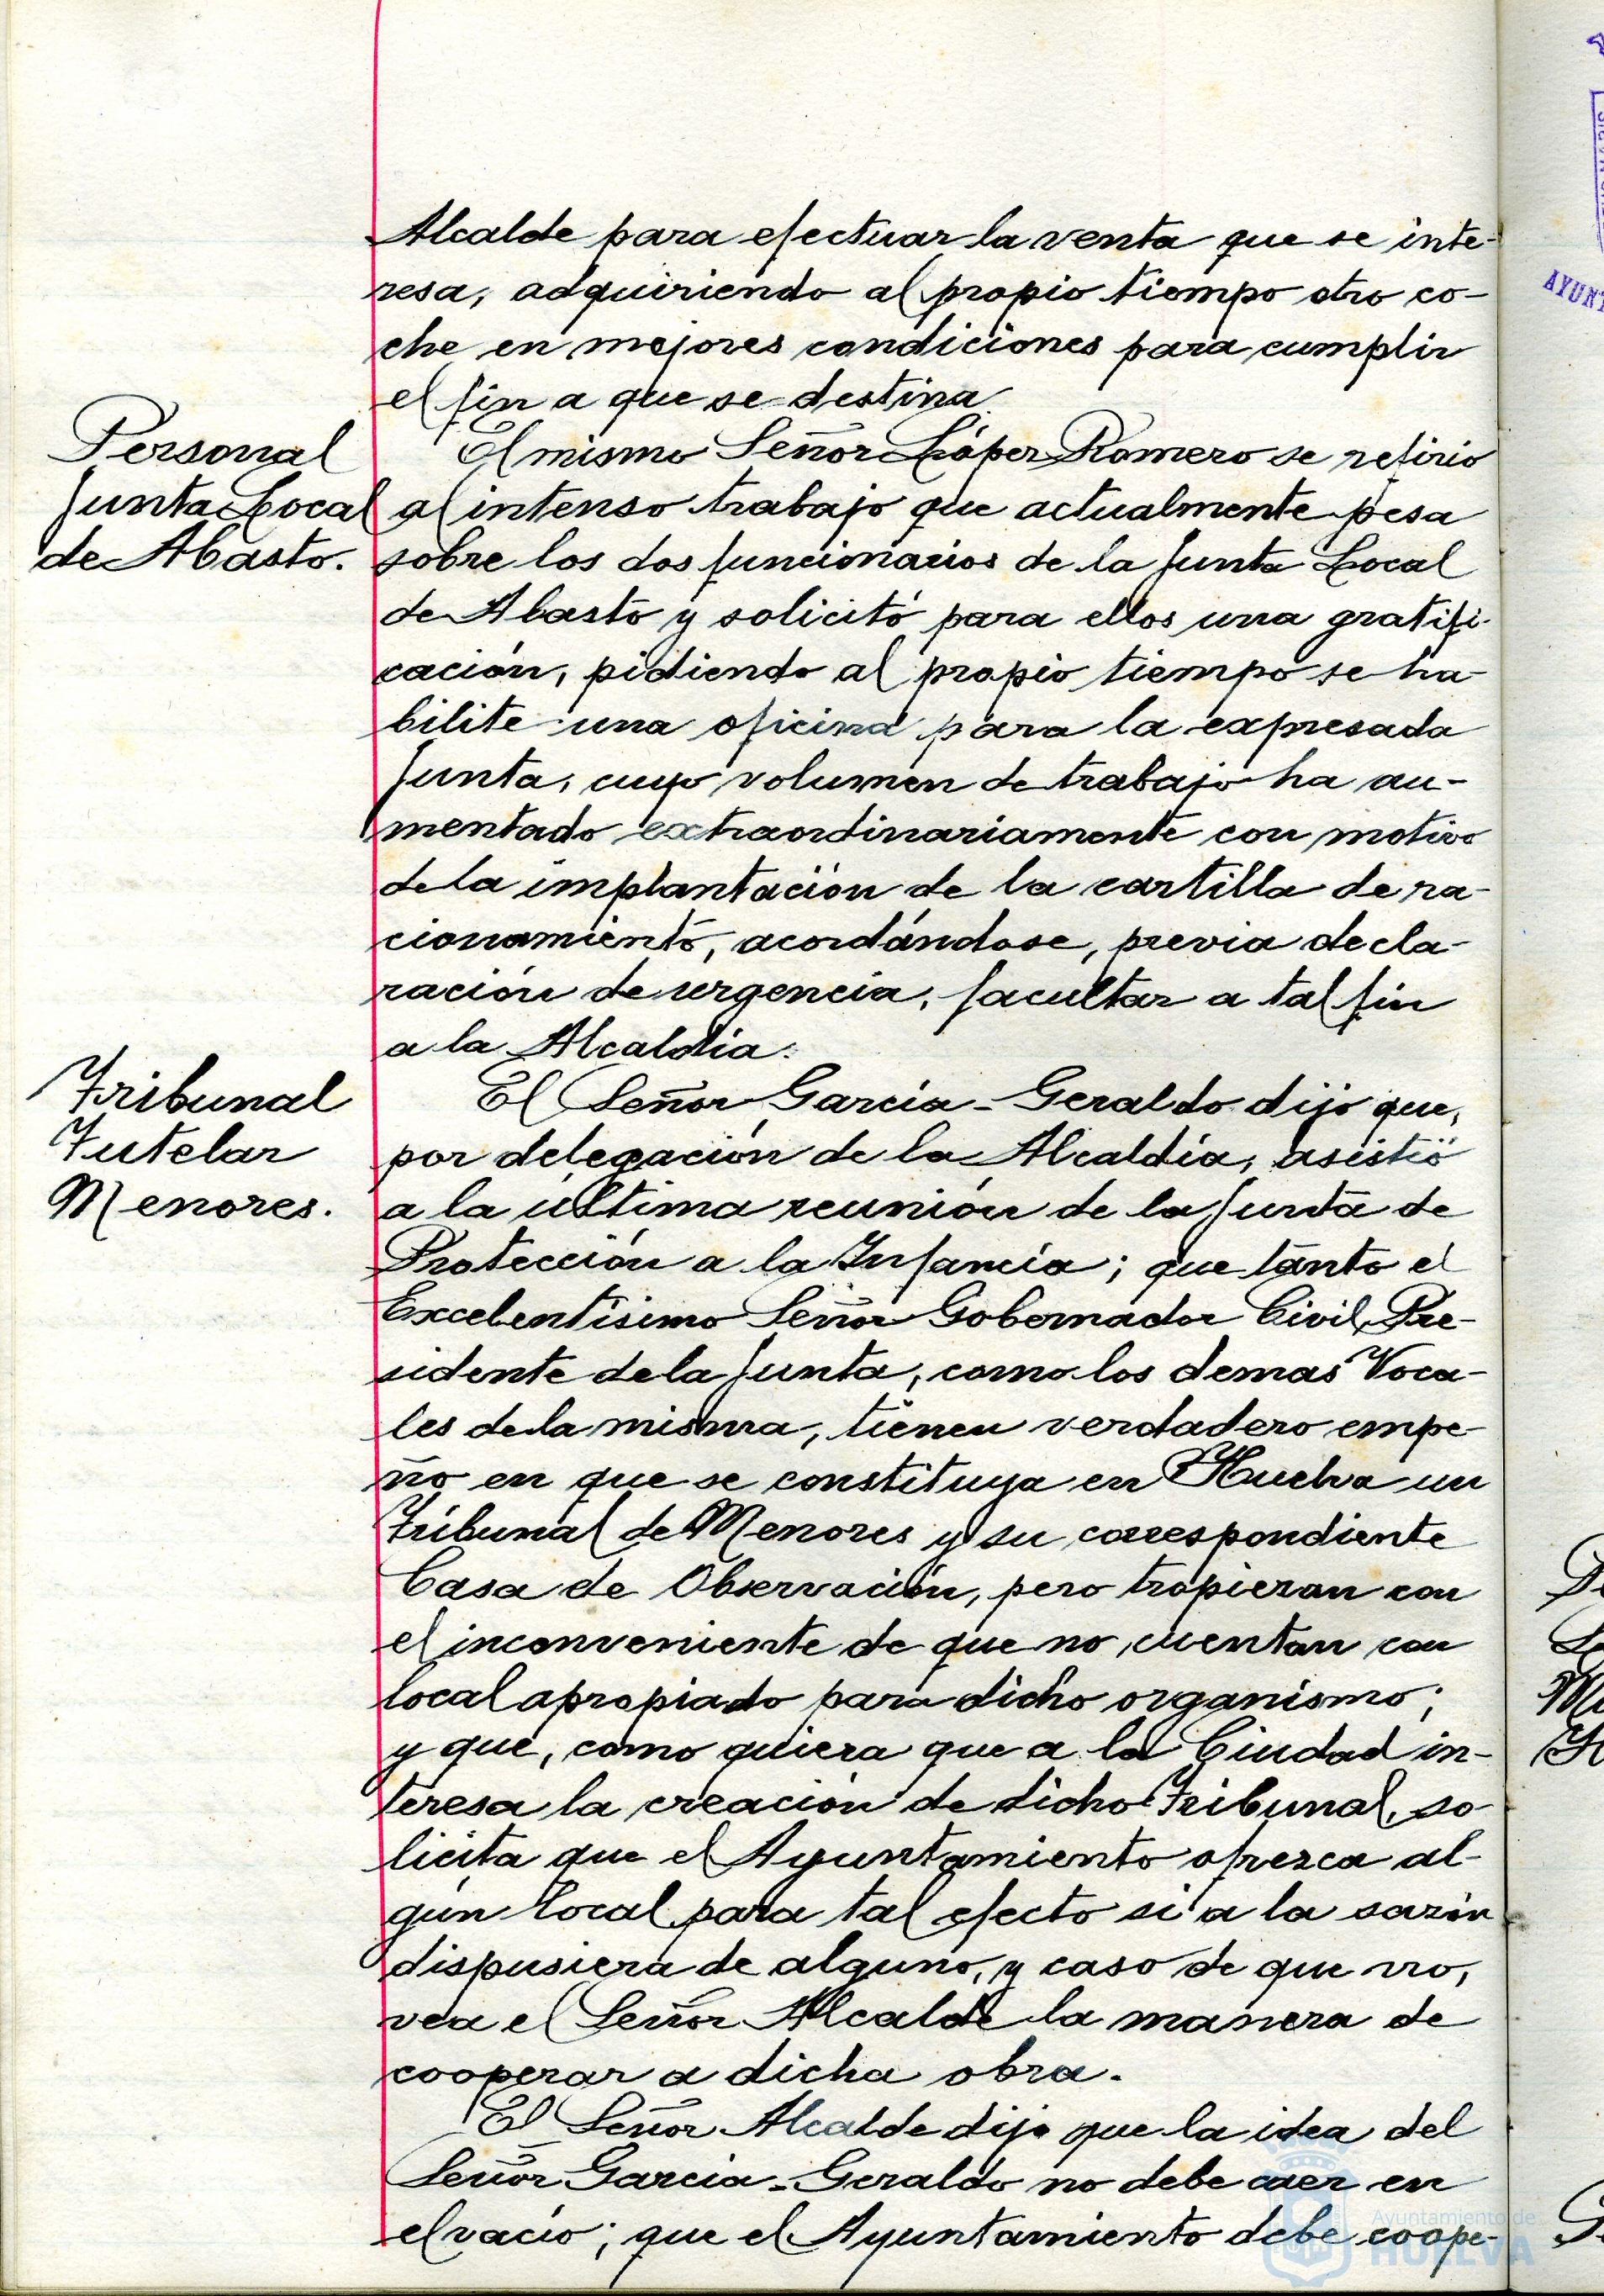 Alcalde para efectuar la venta que se inte-
resa, adquiriendo al propio tiempo otro co-
che en mejores condiciones para cumplir
el fin a que se destina.
Personal
Junta Local
de Abasto.
El mismo Señor López Romero se refirió
al intenso trabajo que actualmente pesa
sobre los dos funcionarios de la Junta Local
de Abasto y solicitó para ellos una gratifi-
cación, pidiendo al propio tiempo se ha-
bilite una oficina para la expresada
Junta, cuyo volumen de trabajo ha au-
mentado extraordinariamente con motivo
de la implantación de la cartilla de ra-
cionamiento, acordándose, previa decla-
ración de urgencia, facultar a tal fin
a la Alcaldia.
Tribunal
Tutelar
Menores.
El Señor García-Geraldo dijo que,
por delegación de la Alcaldía, asistió
a la última reunión de la Junta de
Protección a la Infancia; que tanto el
Excelentísimo Señor Gobernador Civil, Pre-
sidente de la Junta, como los demas Voca-
les de la misma, tienen verdadero empe-
ño en que se constituya en Huelva un
Tribunal de Menores y su correspondiente
Casa de Observación, pero tropiezan con
el inconveniente de que no cuentan con
local apropiado para dicho organismo;
y que, como quiera que a la Ciudad in-
teresa la creación de dicho Tribunal, so-
licita que el Ayuntamiento ofrezca al-
gún local para tal efecto si a la sazón
dispusiera de alguno, y caso de que no,
vea el Señor Alcalde la manera de
cooperar a dicha obra.
El Señor Alcalde dijo que la idea del
Señor García-Geraldo no debe caer en
el vacío; que el Ayuntamiento debe coope-
Ayuntamiento de
HUELVA
AYUNT